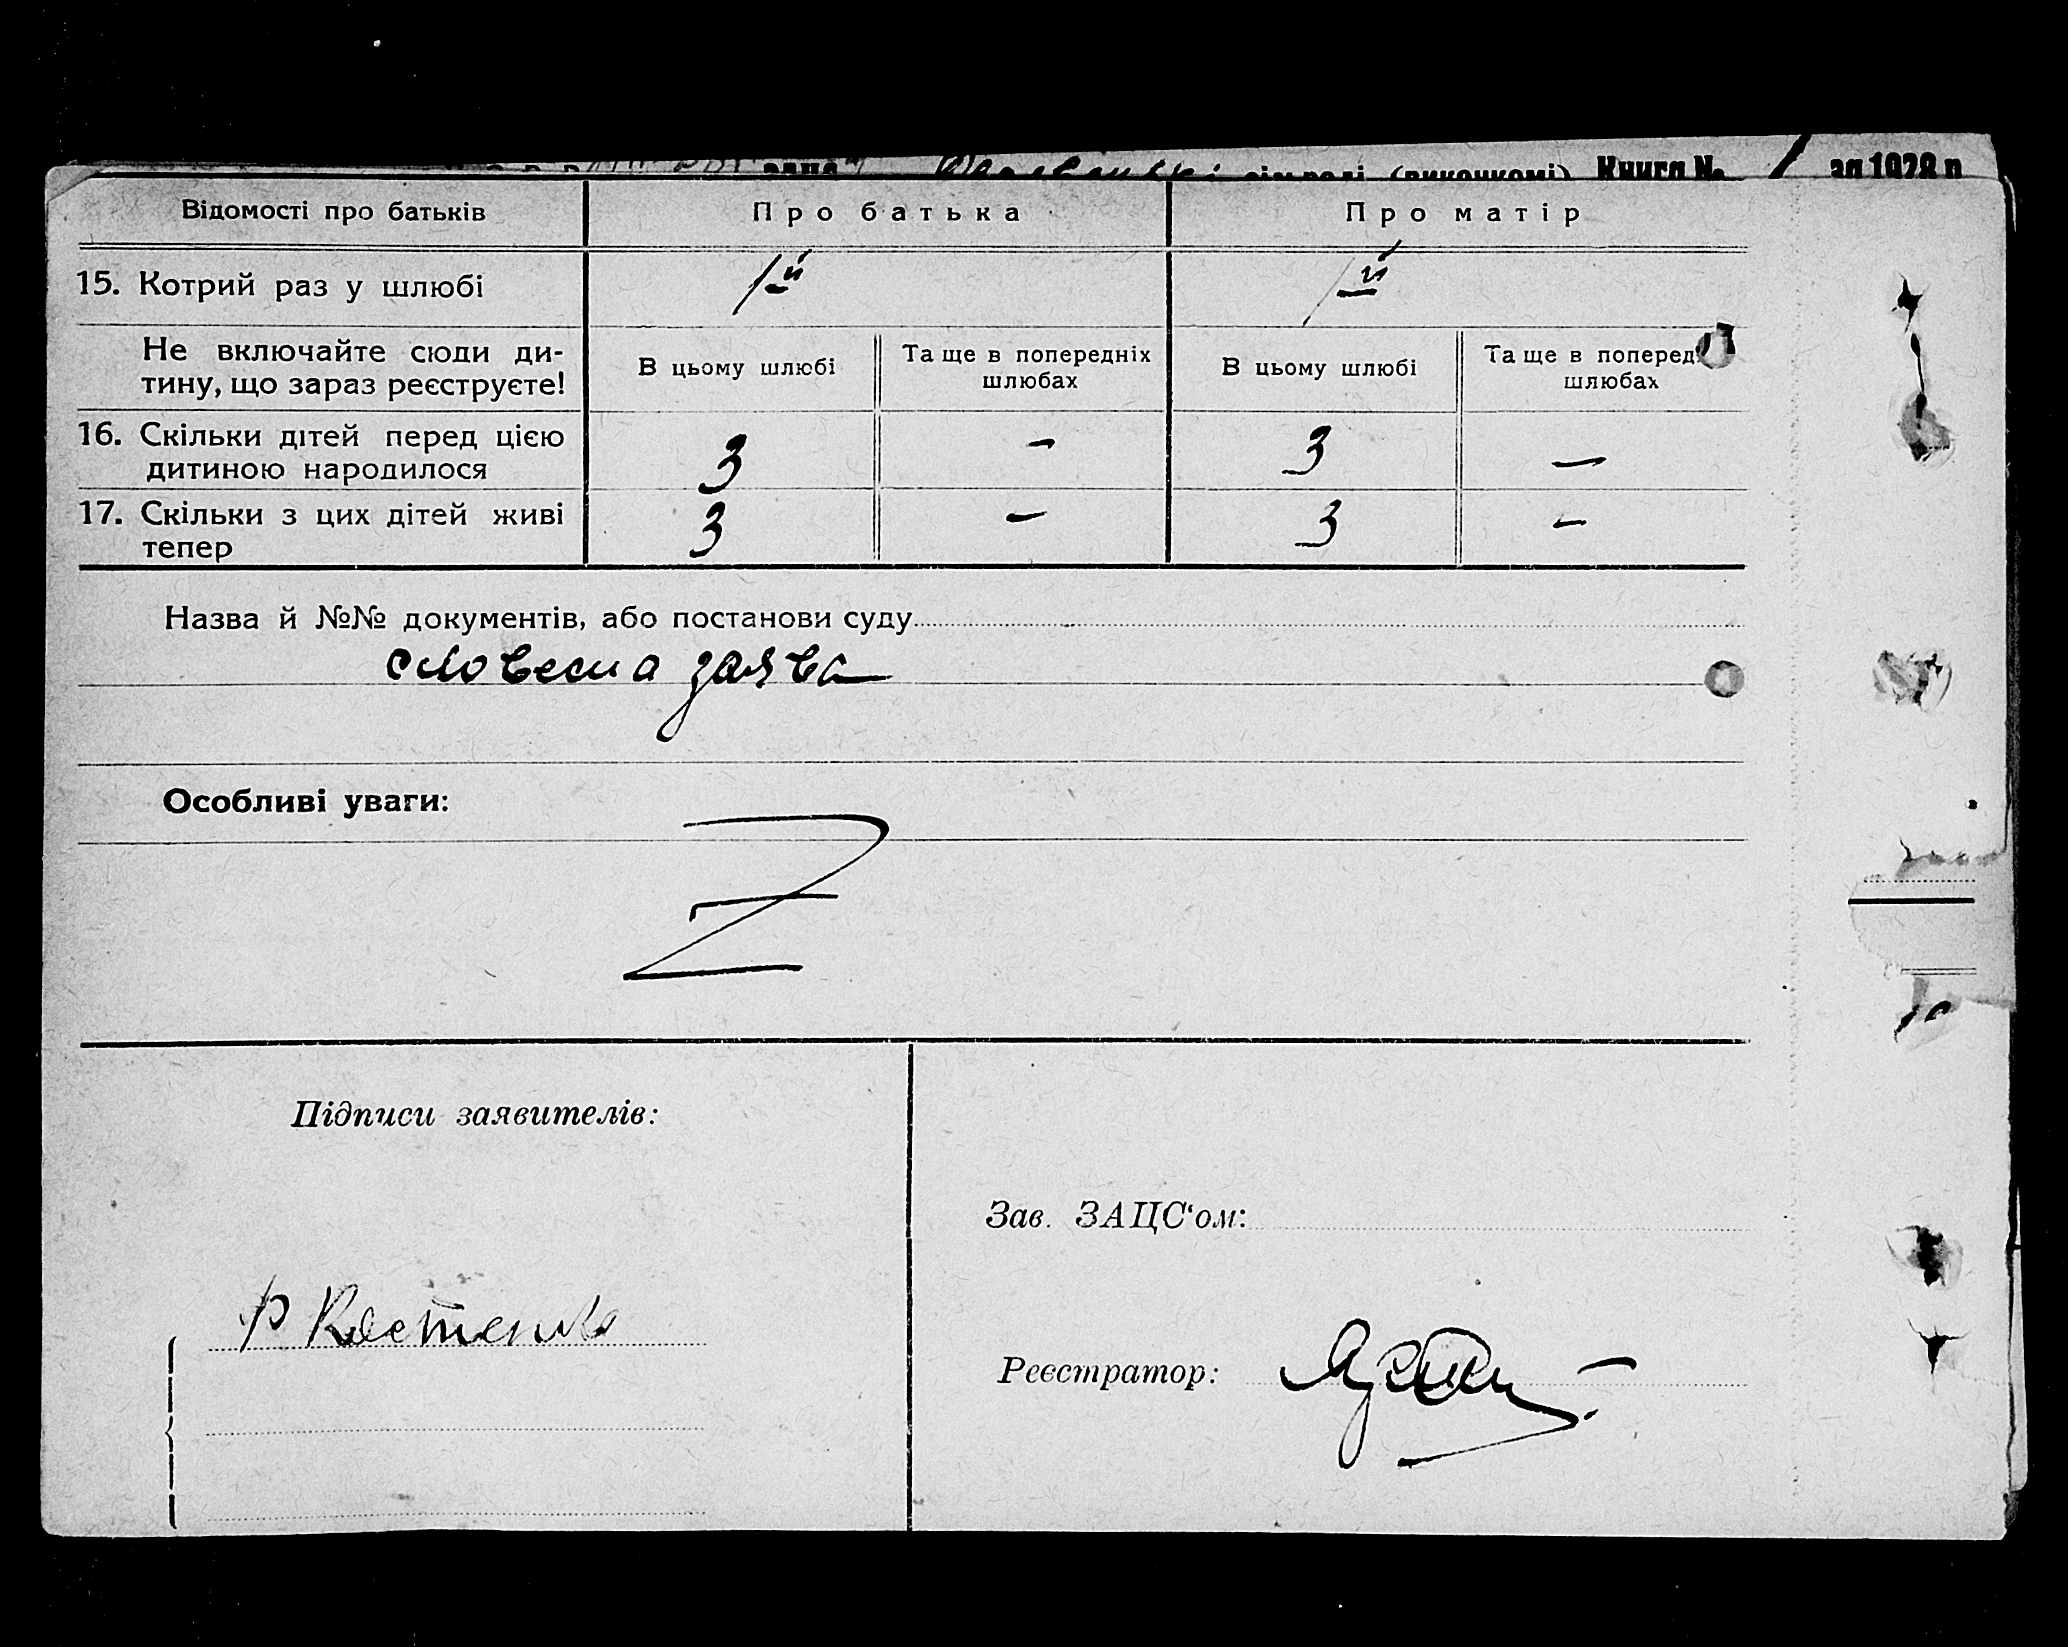 Книга № 1 за 1928 р.
Відомості про батьків Про батька Про матір
15. Котрий раз у шлюбі 1й 1й
Не включайте сюди ди-
тину, що зараз реєструєте!
В цьому шлюбі Та ще в попередніх
шлюбах
В цьому шлюбі Та ще в поперед
шлюбах
16. Скільки дітей перед цією
дитиною народилося
3 – 3 –
17. Скільки з цих дітей живі
тепер
3 – 3 –
Назва й №№ документів, або постанови суду
словесна заява
Особливі уваги:
Z
Підписи заявителів:
Р Костенко
Зав. ЗАЦС‘ом:
Реєстратор: